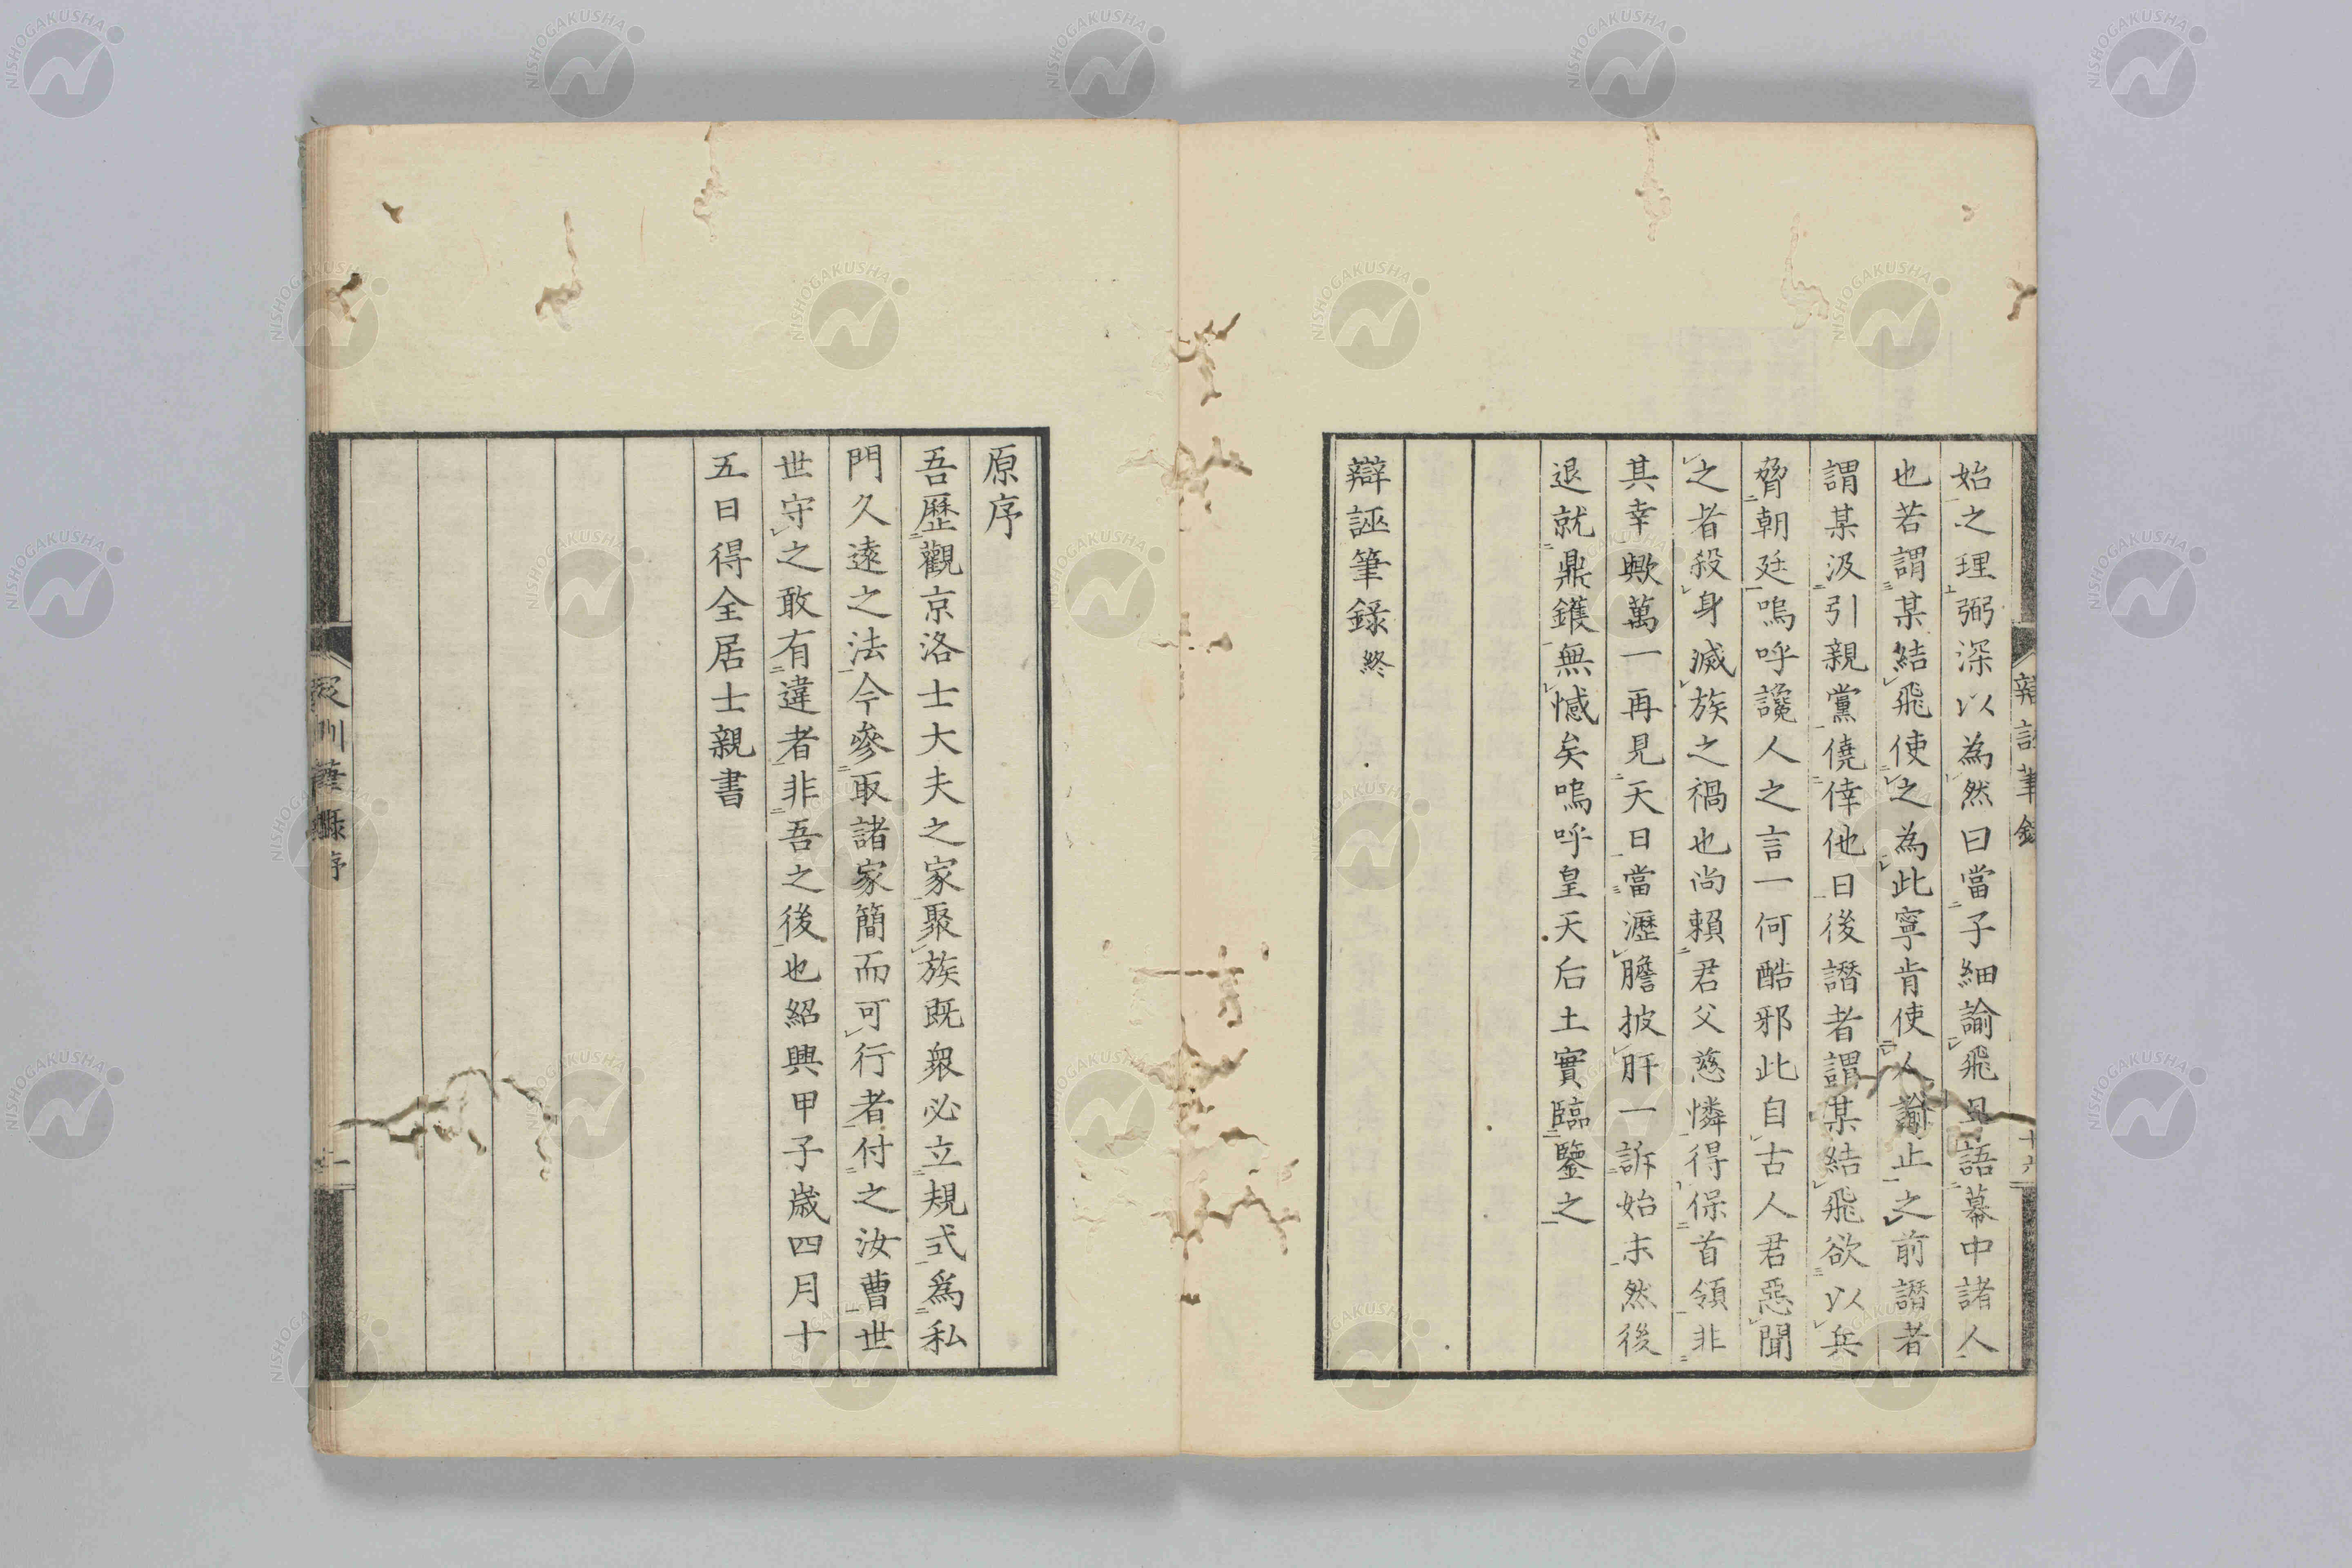 始之理弼深以為然曰當子細諭飛且語幕中諸人
也若謂某結飛使之為此寧肯使人諭止之前譖者
謂某汲引親黨僥倖他日後譖者謂某結飛欲以兵
脅朝廷嗚呼讒人之言一何酷邪此自古人君惡聞
之者殺身滅族之禍也尚賴君父慈憐得保首領非
其幸歟萬一再見天日當瀝膽披肝一訴始末然後
退就鼎鑊無憾矣嗚呼皇天后土實臨鑒之
辯誣筆錄終
原序
吾歷觀京洛士大夫之家聚族既衆必立規式爲私
門久遠之法今參取諸家簡而可行者付之汝曹世
世守之敢有違者非吾之後也紹興甲子歲四月十
五日得全居士親書
辯誣筆錄
家訓筆錄序
NISHOGAKUSHA